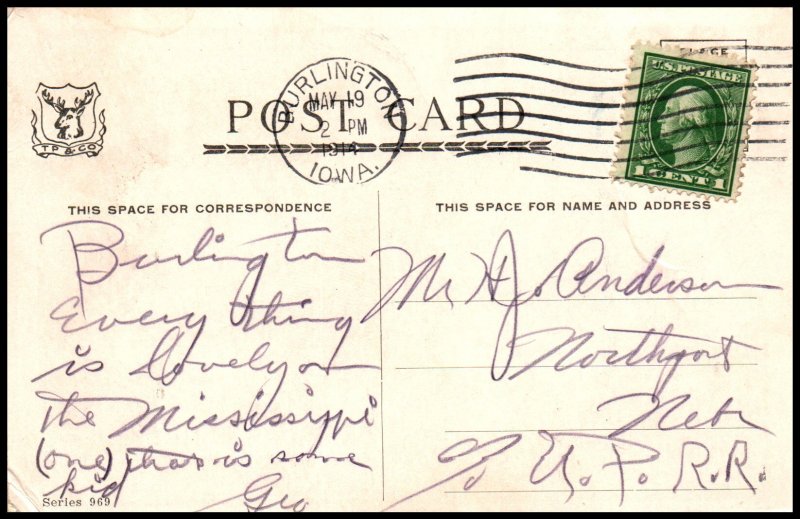 PLACE
U.S. POSTAGE
1 CENT 1
BURLINGTON
MAY 19
2 PM
1914
IOWA.
POST CARD
T P & CO
THIS SPACE FOR CORRESPONDENCE
Burlington
Every thing
is Lovely on
the Mississippi
(one) that is some
kid Geo
Series 969
THIS SPACE FOR NAME AND ADDRESS
Mr H J. Anderson
Northport
Nebr
% U.P. R.R.